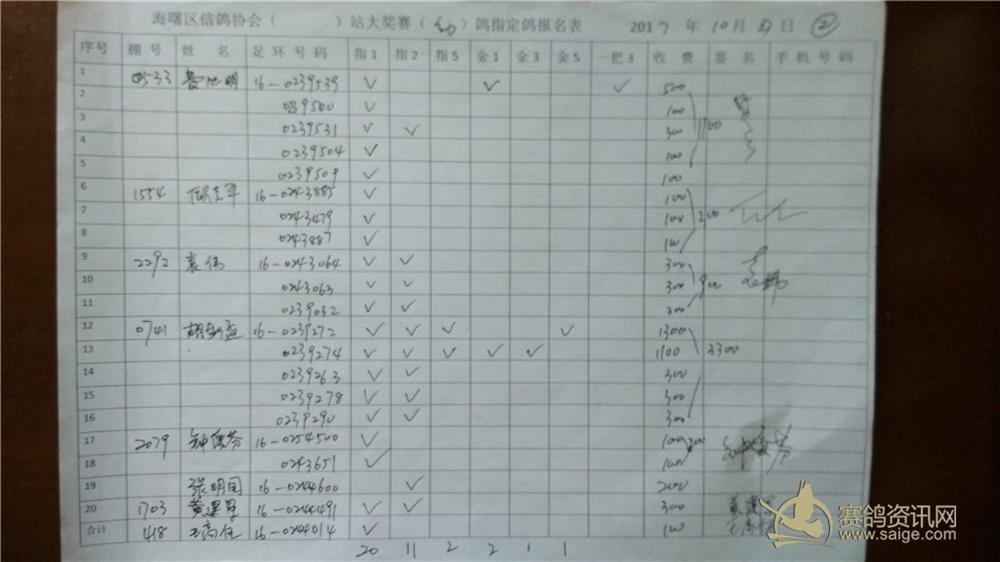 海曙区信鸽协会（ ）站大奖赛（幼）鸽指定鸽报名表 2017 年 10 月 日 ②
序号 棚号 姓 名 足环号码 指1 指2 指5 金1 金3 金5 一把3 收 费 签 名 手机号码
1 0533 明 16-0239539 ✓ ✓ ✓ 500
2 0239500 ✓ 100
3 0239531 ✓ ✓ 300
4 0239504 ✓ 100
5 0239509 ✓ 100
6 1554 16-0243885 ✓ 100
7 0243479 ✓ 100
8 0243887 ✓ 100
9 2292 袁伟 16-0243064 ✓ ✓ 300
10 0243063 ✓ ✓ 300 900
11 0239032 ✓ ✓ 300
12 0741 胡 16-0239272 ✓ ✓ ✓ ✓ 1300
13 0239274 ✓ ✓ ✓ ✓ ✓ 1100 3300
14 0239263 ✓ ✓ 300
15 0239278 ✓ ✓ 300
16 0239290 ✓ ✓ 300
17 2079 钟 芬 16-0254500 ✓ 100 200
18 0243651 ✓ 100
19 张明国 16-0244600 ✓ 200
20 1703 黄建军 16-0244491 ✓ ✓ 300 黄建
合计 418 王高任 16-0244014 ✓ 100 王高任
20 11 2 2 1 1
赛鸽资讯网
www.saige.com